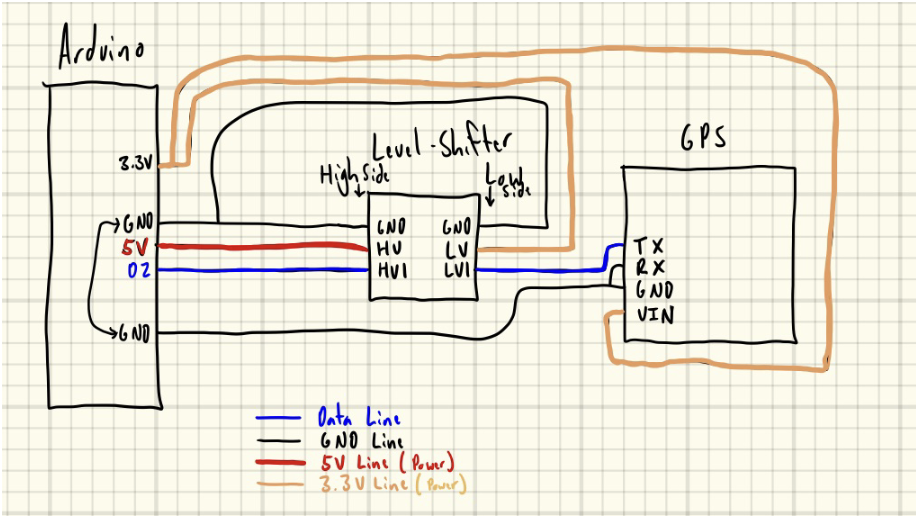 Arduino
3.3V
GND
5V
02
GND
Level-Shifter
High Side
Low Side
GND GND
HV LV
HV1 LV1
GPS
TX
RX
GND
VIN
Data Line
GND Line
5V Line (Power)
3.3V Line (Power)